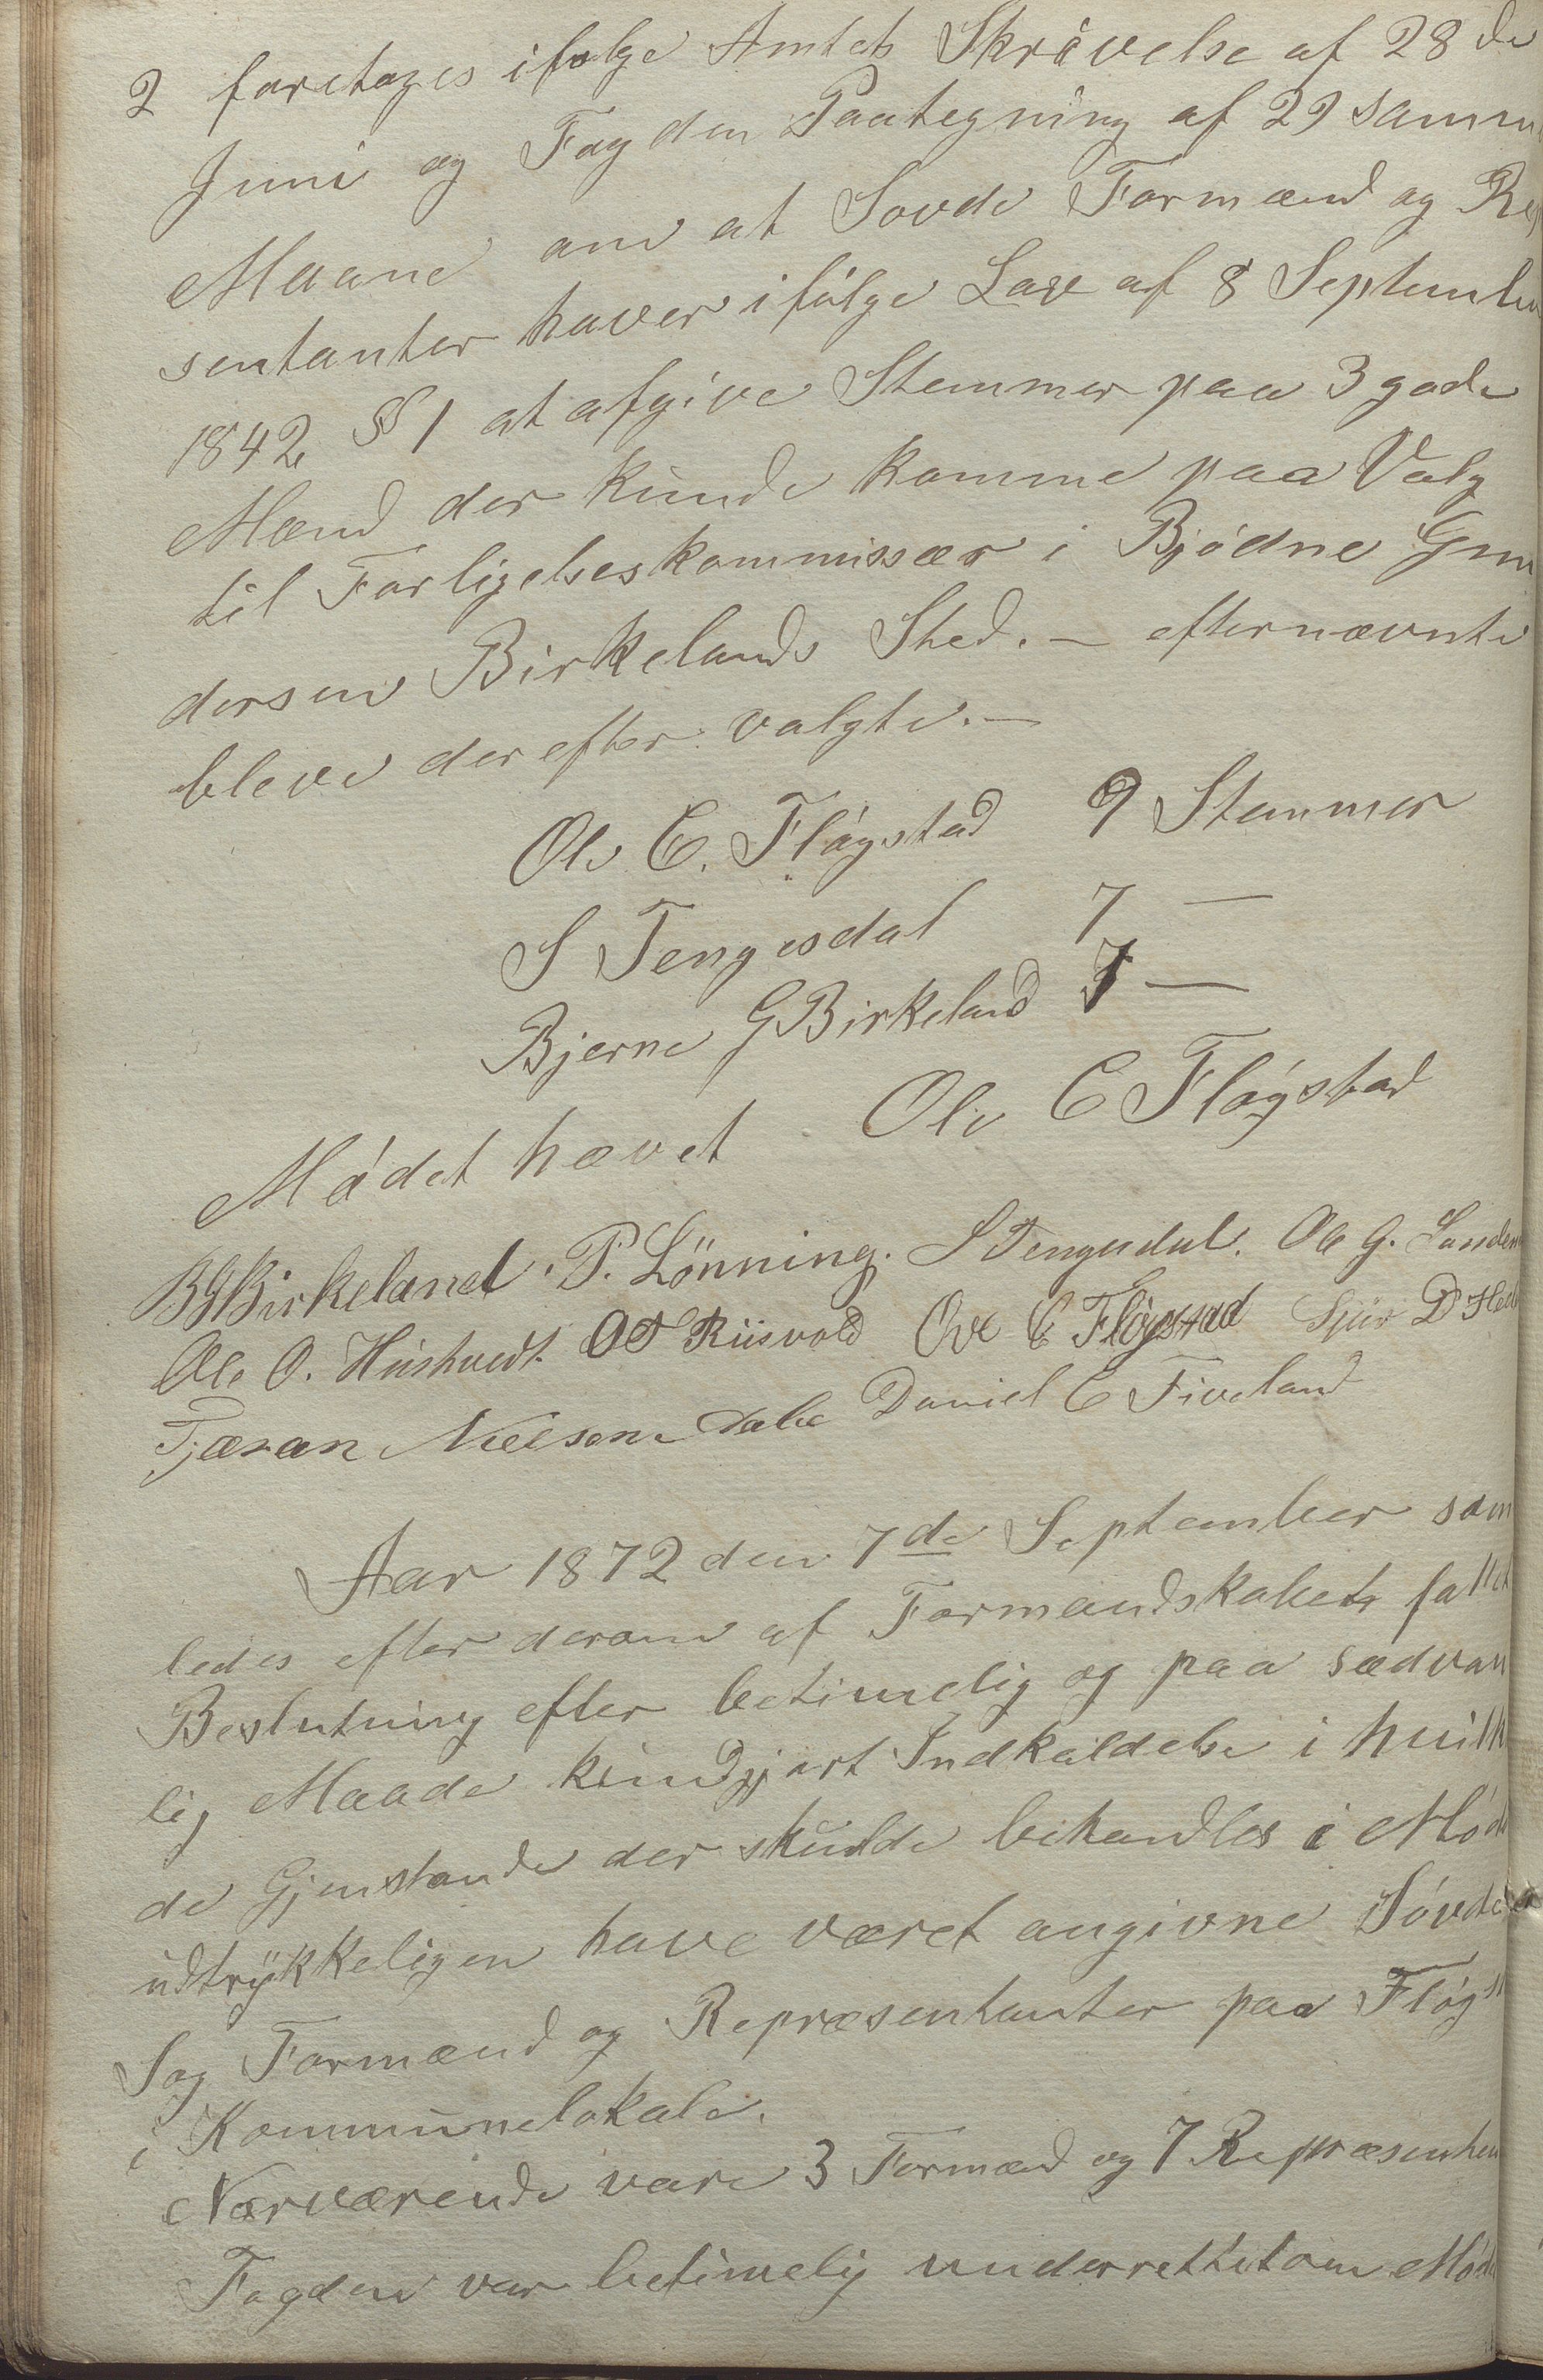 2 foretoges ifolge Amtets Skrivelse af 28 de
Juni og Fogden Paategning af 29 samm
Maane om at Sovde Formænd og Rep
sentanter haver ifølge Lov af 8 Septembe
1842 § 1 at afgive Stemmer paa 3 gode
Mænd der kunde komme paa Valg
til Forligelseskommissær i Bjødne Gun
dersen Birkelands Sted. — efternævnte
bleve derefter valgte. —
Ole C. Fløgstad 9 Stemmer
S Tengesdal 7 —
Bjerne G Birkeland 7 —
Mødet hævet Ole C Fløgstad
BGBirkeland. P. Lönning. S Tengesdal. Ole G. Sanden
Ole O. Hushvedt. O T Riisvold Ove C Fløgstad Sjur D
Tjæran Nielsen Dabe Daniel C Fiveland
Aar 1872 den 7de September sam
ledes efter derom af Formandskabet fattet
Beslutning efter betimelig og paa sædvan
lig Maade kundgjort Indkaldelse i hvilk
de Gjenstande der skulde behandles i Møde
udtrykkeligen have været angivne Søvde
Sog Formænd og Repræsentanter paa Fløgst
i Kommunelokale.
Nærværende vare 3 Formænd og 7 Repræsentan
Fogden var betimelig underrettet om Møde